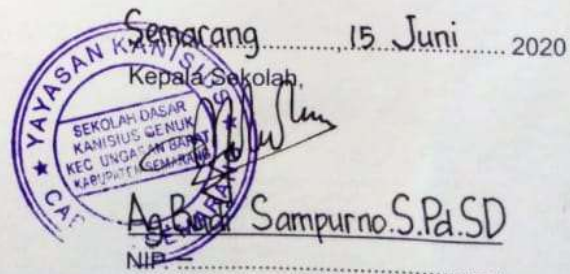 Semarang, 15 Juni 2020
Kepala Sekolah,
YAYASAN KANISIUS
SEKOLAH DASAR
KANISIUS GENUK
KEC UNGARAN BARAT
KABUPATEN SEMARANG
SEMARANG
Ag. Budi Sampurno.S.Pd.SD
NIP. -